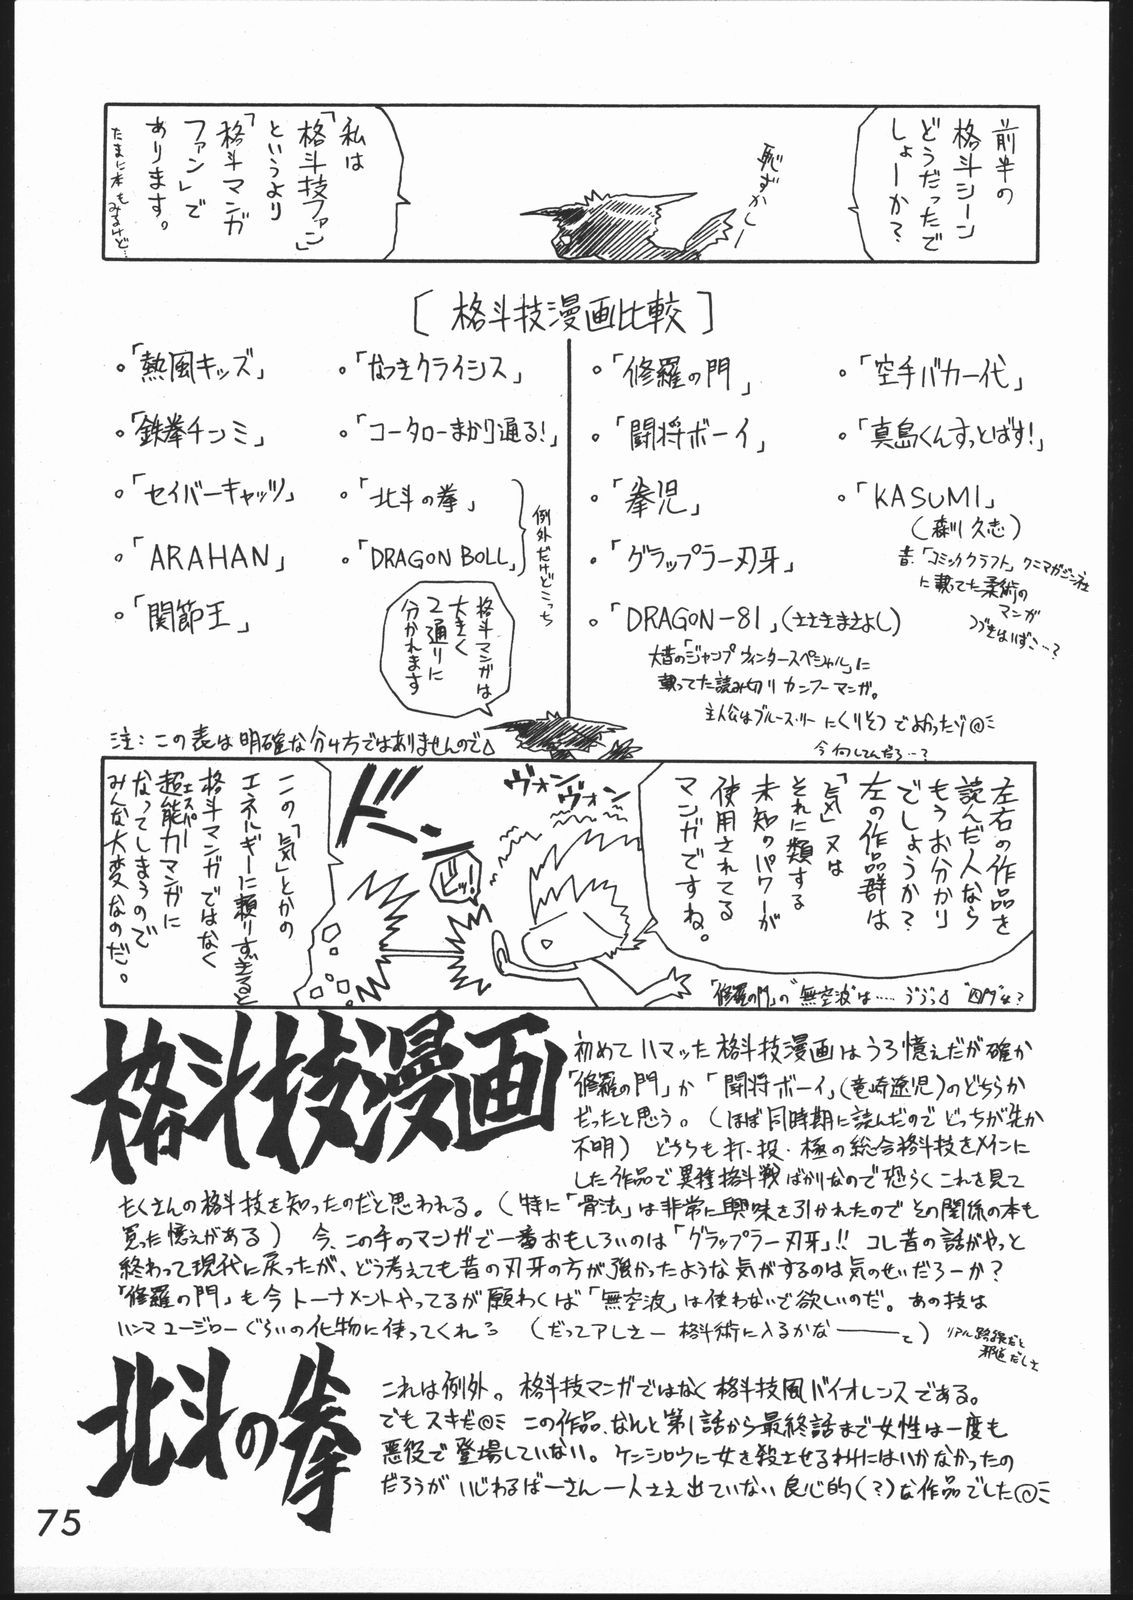 前半の
格斗シーン
どうだったで
しょーか?
恥ずかしー
私は
「格斗技ファン」
というより
「格斗マンガ
ファン」で
あります。
たまに本もみるけど…
[格斗技漫画比較]
・「熱風キッズ」
・「なつきクライシス」
・「修羅の門」
・「空手バカ一代」
・「鉄拳チンミ」
・「コータローまかり通る!」
・「闘将ボーイ」
・「真島くんすっとばす!」
・「セイバーキャッツ」
・「北斗の拳」
・「拳児」
・「KASUMI」
(森川久志)
・「ARAHAN」
・「DRAGON BOLL」
例外だけどこっち
・「グラップラー刃牙」
昔、「コミッククラフト」クニマガジン社
に載ってた柔術の
マンガ
つづきはいずこ…?
・「関節王」
・「DRAGON-81」(ささきまさよし)
大昔の「ジャンプウィンタースペシャル」に
載ってた読み切りカンフーマンガ。
主人公はブルース・リーにくりそつでよかったゾ
今何してんだろ…?
格斗マンガは
大きく
2通りに
分かれます
注:この表は明確な分け方ではありませんので
左右の作品を
読んだ人なら
もうお分かり
でしょうか?
左の作品群は
「気」又は
それに類する
未知のパワーが
使用されてる
マンガですね。
「修羅の門」の“無空波”は……
ヴォン
ヴォン
ビッ!
ドン
この「気」とかの
エネルギーに頼りすぎると
格斗マンガではなく
超能力マンガに
エスパー
なってしまうので
みんな大変なのだ。
格斗技漫画
初めてハマッた格斗技漫画はうろ憶えだが確か
「修羅の門」か「闘将ボーイ」(竜崎遼児)のどちらか
だったと思う。(ほぼ同時期に読んだのでどっちが先か
不明)どちらも打・投・極の総合格斗技をメインに
した作品で異種格斗戦ばかりなので恐らくこれを見て
たくさんの格斗技を知ったのだと思われる。(特に「骨法」は非常に興味を引かれたのでその関係の本も
買った憶えがある)今、この手のマンガで一番おもしろいのは「グラップラー刃牙」!!コレ昔の話がやっと
終わって現代に戻ったが、どう考えても昔の刃牙の方が強かったような気がするのは気のせいだろーか?
「修羅の門」も今トーナメントやってるが願わくば「無空波」は使わないで欲しいのだ。あの技は
ハンマユージローぐらいの化物に使ってくれ
(だってアレさー格斗術に入るかなーーーと)
リアル路線だと
邪道だしさ
北斗の拳
これは例外。格斗技マンガではなく格斗技風バイオレンスである。
でもスキだ この作品、なんと第1話から最終話まで女性は一度も
悪役で登場していない。ケンシロウに女を殺させるわけにはいかなかったの
だろうがいじわるばーさん一人さえ出ていない良心的(?)な作品でした
75